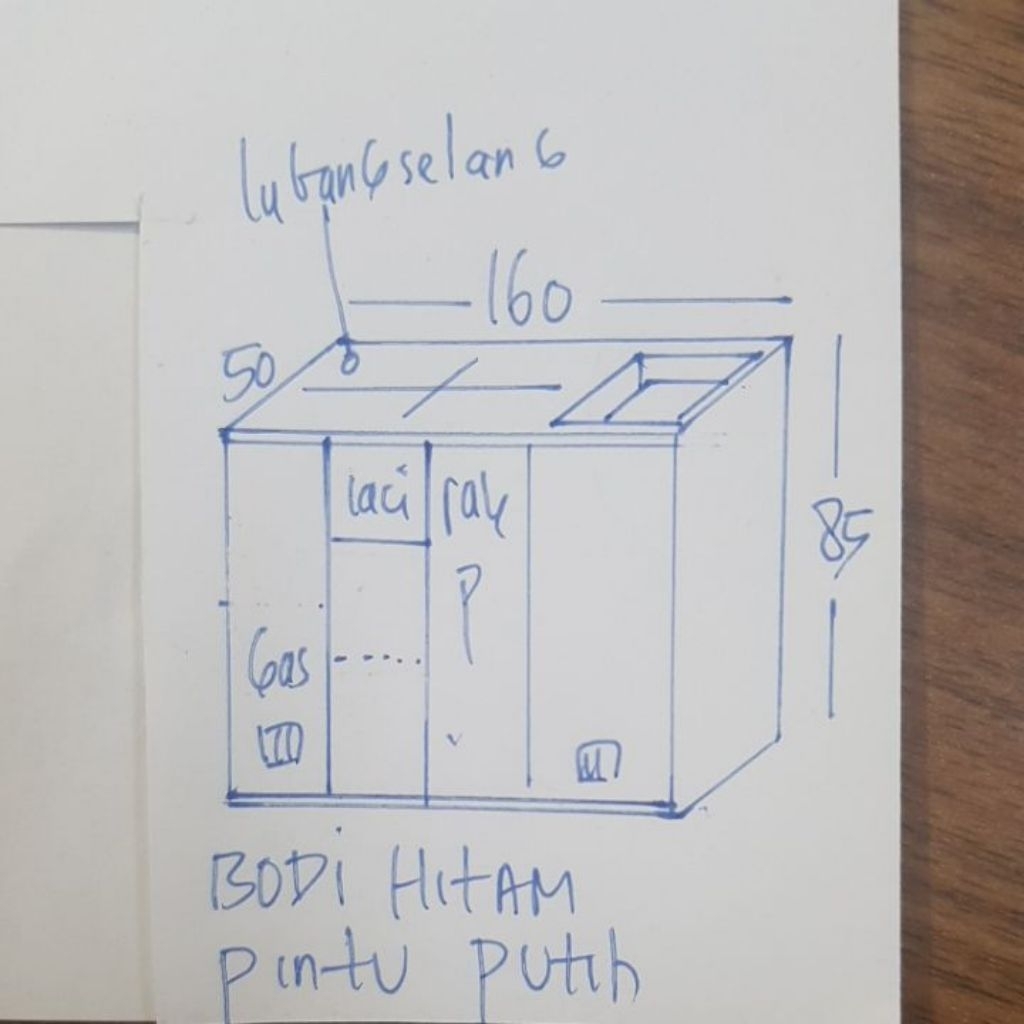 lubang selang
160
50
laci
rak
85
P
Gas
BODI HITAM
pintu putih